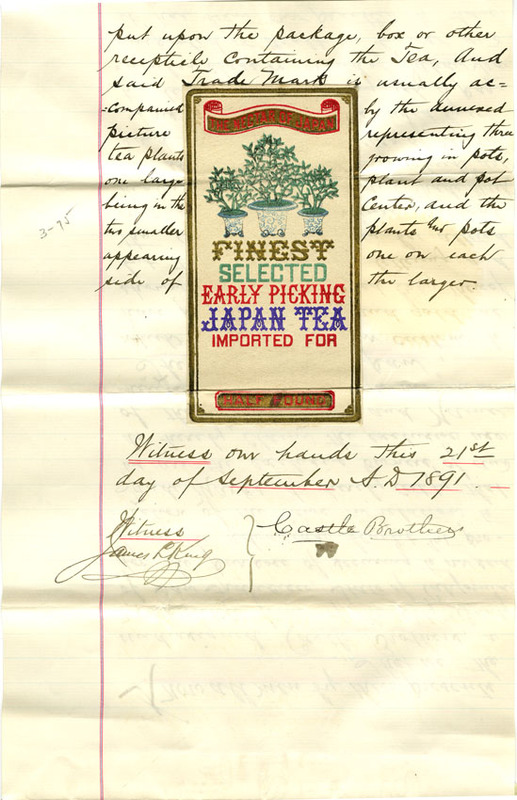 put upon the package, box or other
receptible containing the Tea, And
said Trade Mark is usually ac=
-companied by the annexed
picture representing three
tea plants growing in pots,
one large plant and pot
being in the Center, and the
two smaller plants and pots
appearing one on each
side of the larger
3-95
THE NECTAR OF JAPAN
FINEST
SELECTED
EARLY PICKING
JAPAN TEA
IMPORTED FOR
HALF POUND
Witness our hands this 21st
day of September A.D 1891.
Witness
James L King
Castle Brothers